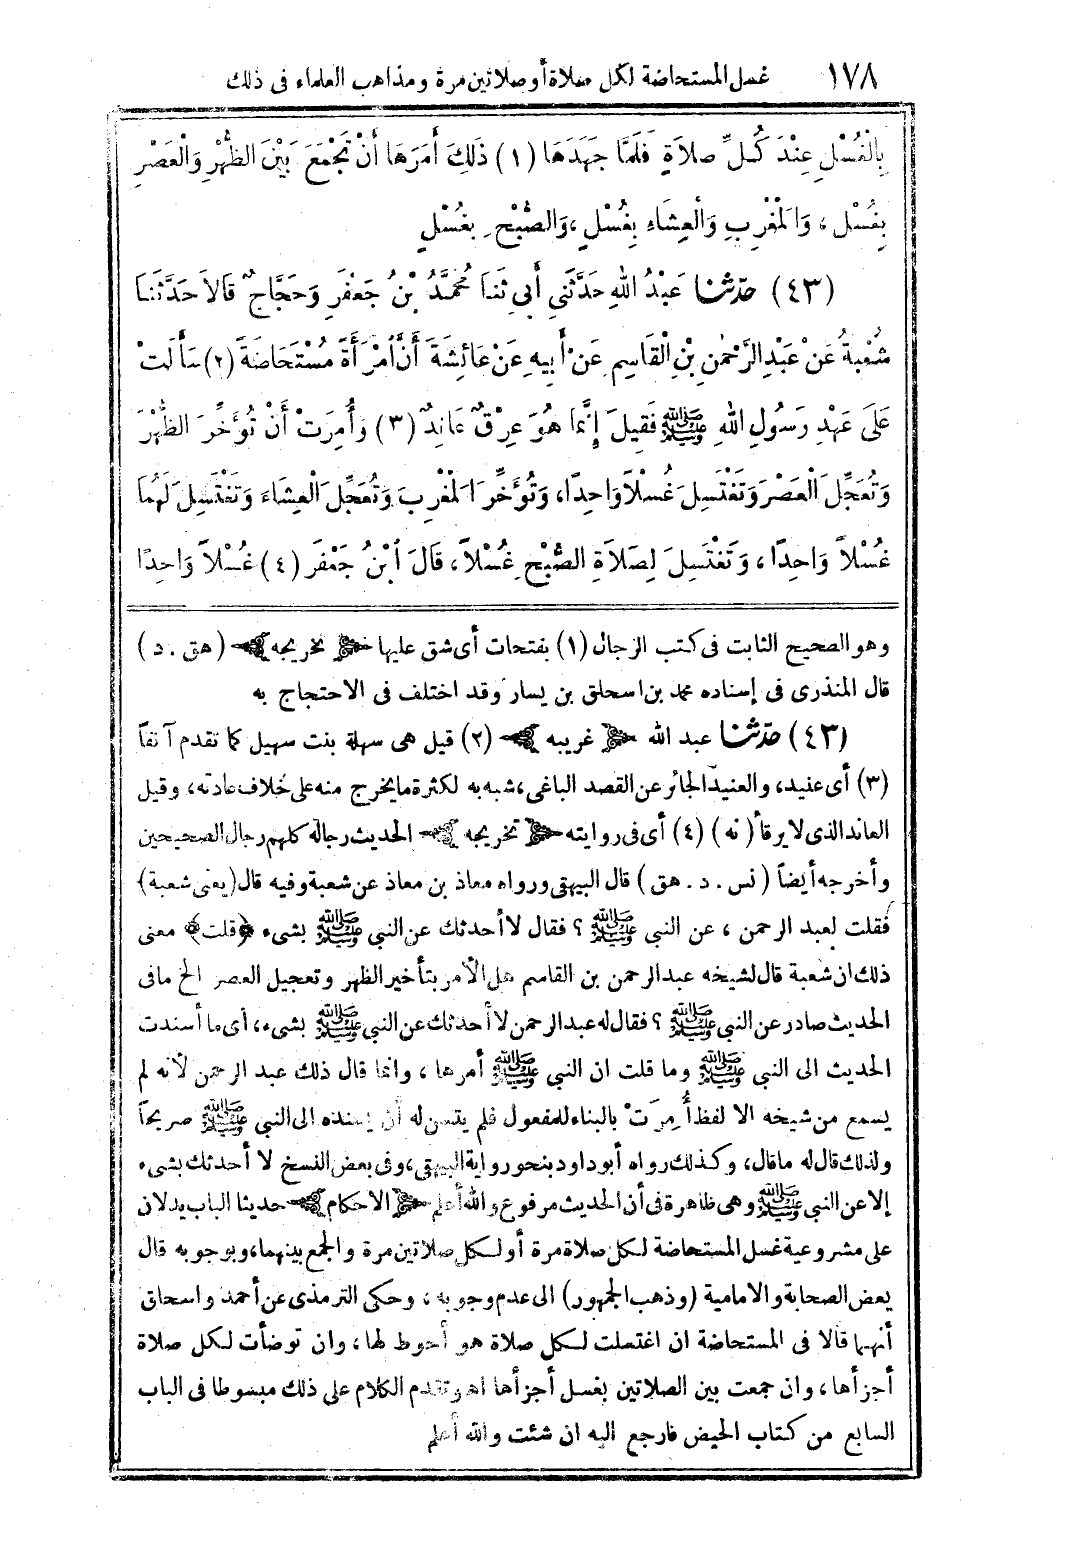 ١٧٨ غسل المستحاضة لكل صلاة أو صلاتين مرة ومذاهب العلماء فى ذلك
بِالْغُسْلِ عِنْدَ كُلِّ صَلاَةٍ فَلَمَّا جَهَدَهَا (١) ذَلِكَ أَمَرَهَا أَنْ تَجْمَعَ بَيْنَ الظُّهْرِ وَالْعَصْرِ
بِغُسْلٍ ، وَالمَغْرِبِ وَالْعِشَاءِ بِغُسْلٍ ، وَالصُّبْحِ بِغُسْلٍ
(٤٣) حدّثنا عَبْدُ اللهِ حَدَّثَنِي أَبِي ثَنَا مُحَمَّدُ بْنُ جَعْفَرٍ وَحَجَّاجٌ قَالاَ حَدَّثَنَا
شُعْبَةُ عَنْ عَبْدِ الرَّحْمٰنِ بْنِ الْقَاسِمِ عَنْ أَبِيهِ عَنْ عَائِشَةَ أَنَّ امْرَأَةً مُسْتَحَاضَةً (٢) سَأَلَتْ
عَلَى عَهْدِ رَسُولِ اللهِ ﷺ فَقِيلَ إِنَّمَا هُوَ عِرْقٌ عَانِدٌ (٣) وَأُمِرَتْ أَنْ تُؤَخِّرَ الظُّهْرَ
وَتُعَجِّلَ الْعَصْرَ وَتَغْتَسِلَ غُسْلاً وَاحِدًا، وَتُؤَخِّرَ المَغْرِبَ وَتُعَجِّلَ الْعِشَاءَ وَتَغْتَسِلَ لَهُمَا
غُسْلاً وَاحِدًا ، وَتَغْتَسِلَ لِصَلاَةِ الصُّبْحِ غُسْلاً، قَالَ ابْنُ جَعْفَرٍ (٤) غُسْلاً وَاحِدًا
وهو الصحيح الثابت فى كتب الرجال (١) بفتحات أى شق عليها ﴿ تخريجه ﴾ ( هق . د )
قال المنذرى فى إسناده محمد بن اسحاق بن يسار وقد اختلف فى الاحتجاج به
(٤٣) حدّثنا عبد الله ﴿ غريبه ﴾ (٢) قيل هى سهلة بنت سهيل كما تقدم آنفاً
(٣) أى عنيد، والعنيد الجائر عن القصد الباغى، شبه به لكثرة ما يخرج منه على خلاف عادته، وقيل
العاند الذى لا يرقأ (نه) (٤) أى فى روايته ﴿ تخريجه ﴾ الحديث رجاله كلهم رجال الصحيحين
وأخرجه أيضاً ( نس . د . هق ) قال البيهقى ورواه معاذ بن معاذ عن شعبة وفيه قال (يعنى شعبة)
فقلت لعبد الرحمن ، عن النبى ﷺ ؟ فقال لا أحدثك عن النبى ﷺ بشىء ﴿قلت﴾ معنى
ذلك ان شعبة قال لشيخه عبد الرحمن بن القاسم هل الأمر بتأخير الظهر وتعجيل العصر الخ ما فى
الحديث صادر عن النبى ﷺ ؟ فقال له عبد الرحمن لا أحدثك عن النبى ﷺ بشىء، أى ما أسندت
الحديث الى النبى ﷺ وما قلت ان النبى ﷺ أمرها ، وانما قال ذلك عبد الرحمن لأنه لم
يسمع من شيخه الا لفظ أُمِرَتْ بالبناء للمفعول فلم يتسن له أن يسنده الى النبى ﷺ صريحاً
ولذلك قال له ما قال، وكذلك رواه أبو داود بنحو رواية البيهقى، وفى بعض النسخ لا أحدثك بشىء
إلا عن النبى ﷺ وهى ظاهرة فى أن الحديث مرفوع والله أعلم ﴿ الاحكام ﴾ حديثا الباب يدلان
على مشروعية غسل المستحاضة لكل صلاة مرة أو لكل صلاتين مرة والجمع بينهما، وبوجوبه قال
بعض الصحابة والامامية (وذهب الجمهور) الى عدم وجوبه ، وحكى الترمذى عن أحمد واسحاق
أنهما قالا فى المستحاضة ان اغتسلت لكل صلاة هو أحوط لها، وان توضأت لكل صلاة
أجزأها، وان جمعت بين الصلاتين بغسل أجزأها اهـ وتقدم الكلام على ذلك مبسوطا فى الباب
السابع من كتاب الحيض فارجع اليه ان شئت والله أعلم